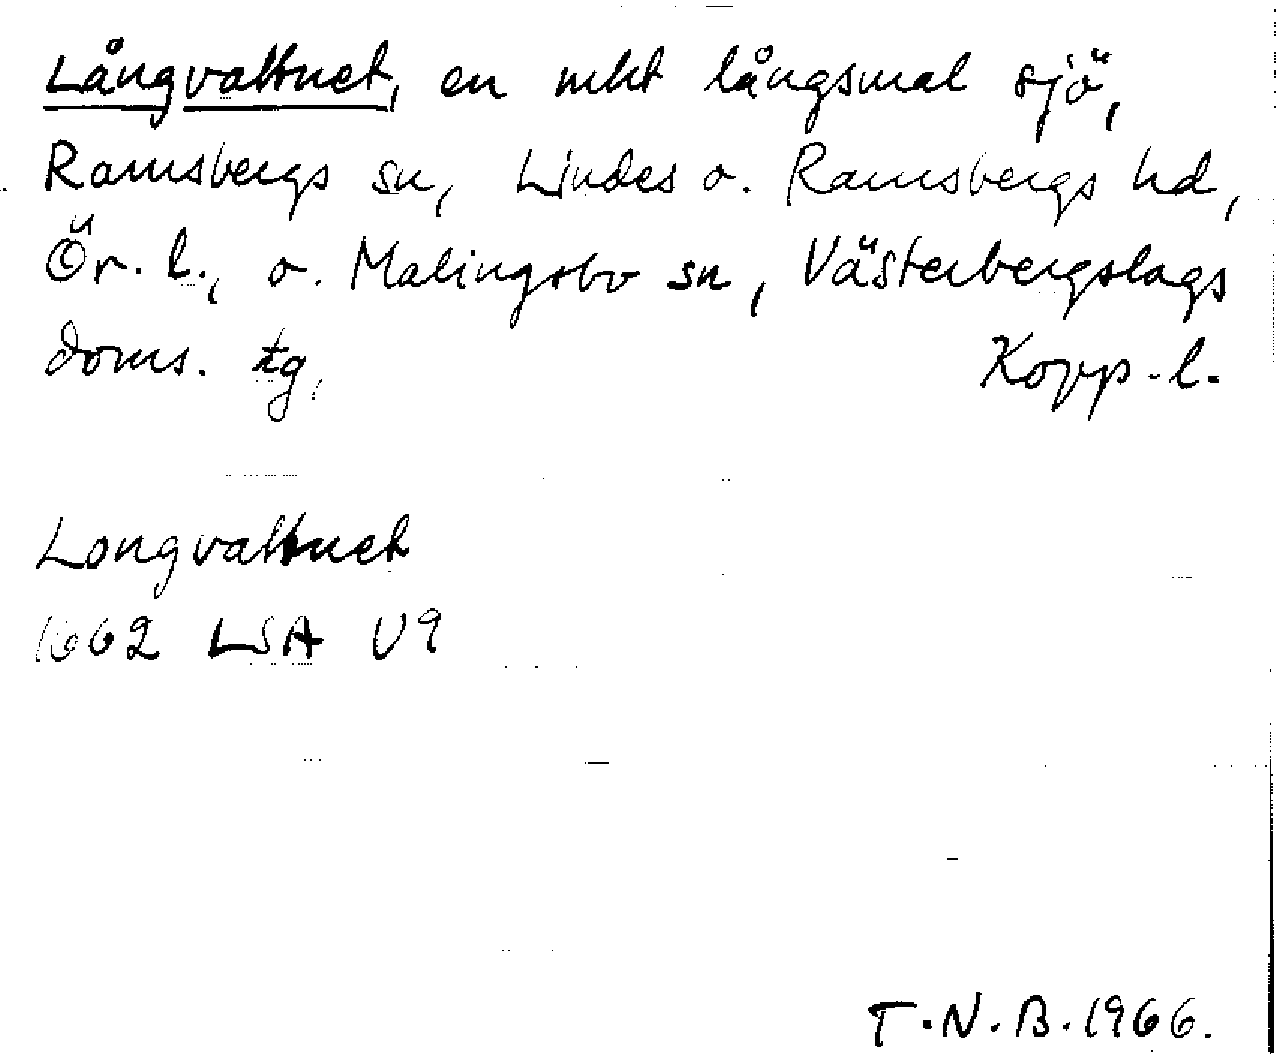 Långvattnet, en mkt långsmal sjö,
Ramsbergs sn, Lindes o. Ramsbergs hd,
Ör. l., o. Malingsbo sn, Västerbergslags
doms. tg, Kopp. l.
Longvattnet
1662 LSA U9
T.N.B. 1966.